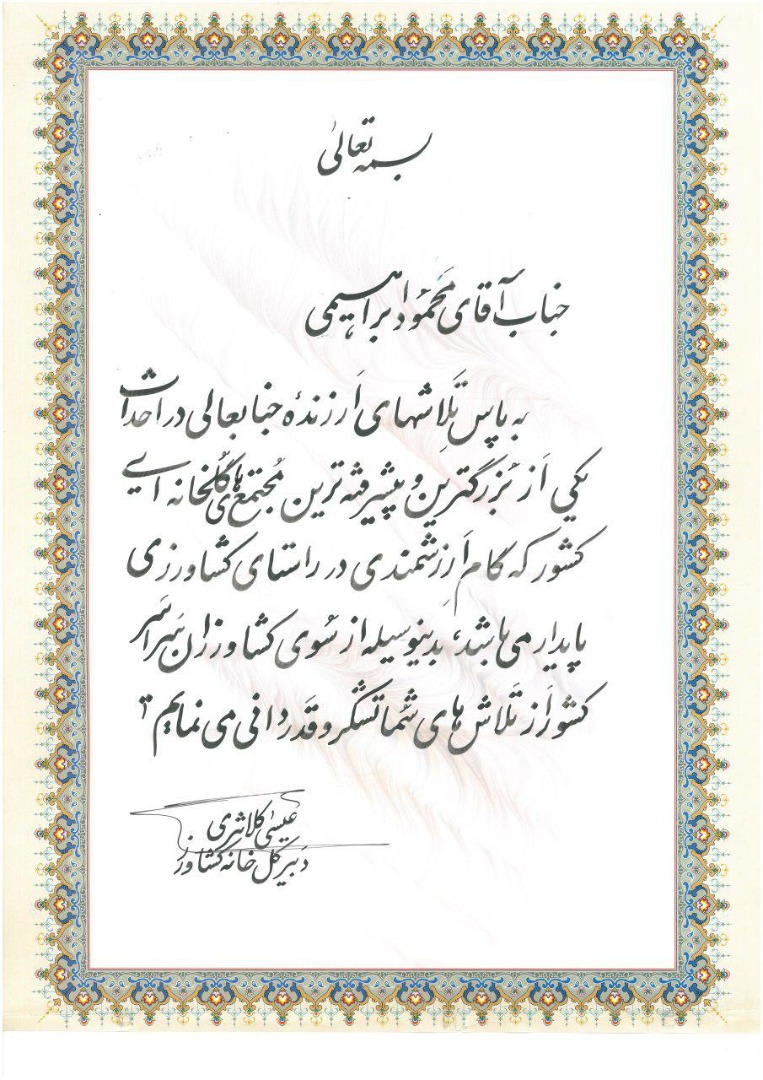 بسمه تعالی
جناب آقای محمود ابراهیمی
به پاس تلاشهای ارزنده جنابعالی در احداث
یکی از بزرگترین و پیشرفته ترین مجتمع های گلخانه ایی
کشور که گام ارزشمندی در راستای کشاورزی
پایدار می باشد، بدینوسیله از سوی کشاورزان سراسر
کشور از تلاش های شما تشکر و قدردانی می نمایم
عیسی کلانتری
دبیر کل خانه کشاورز